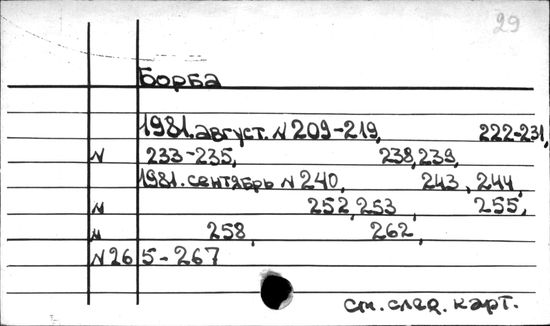 29
Борба
1981. август. N 209-219, 222-231,
N 233-235, 238, 239,
1981. сентябрь N 240, 243, 244,
N 252, 253, 255,
N 258, 262,
N 265-267
см. след. карт.